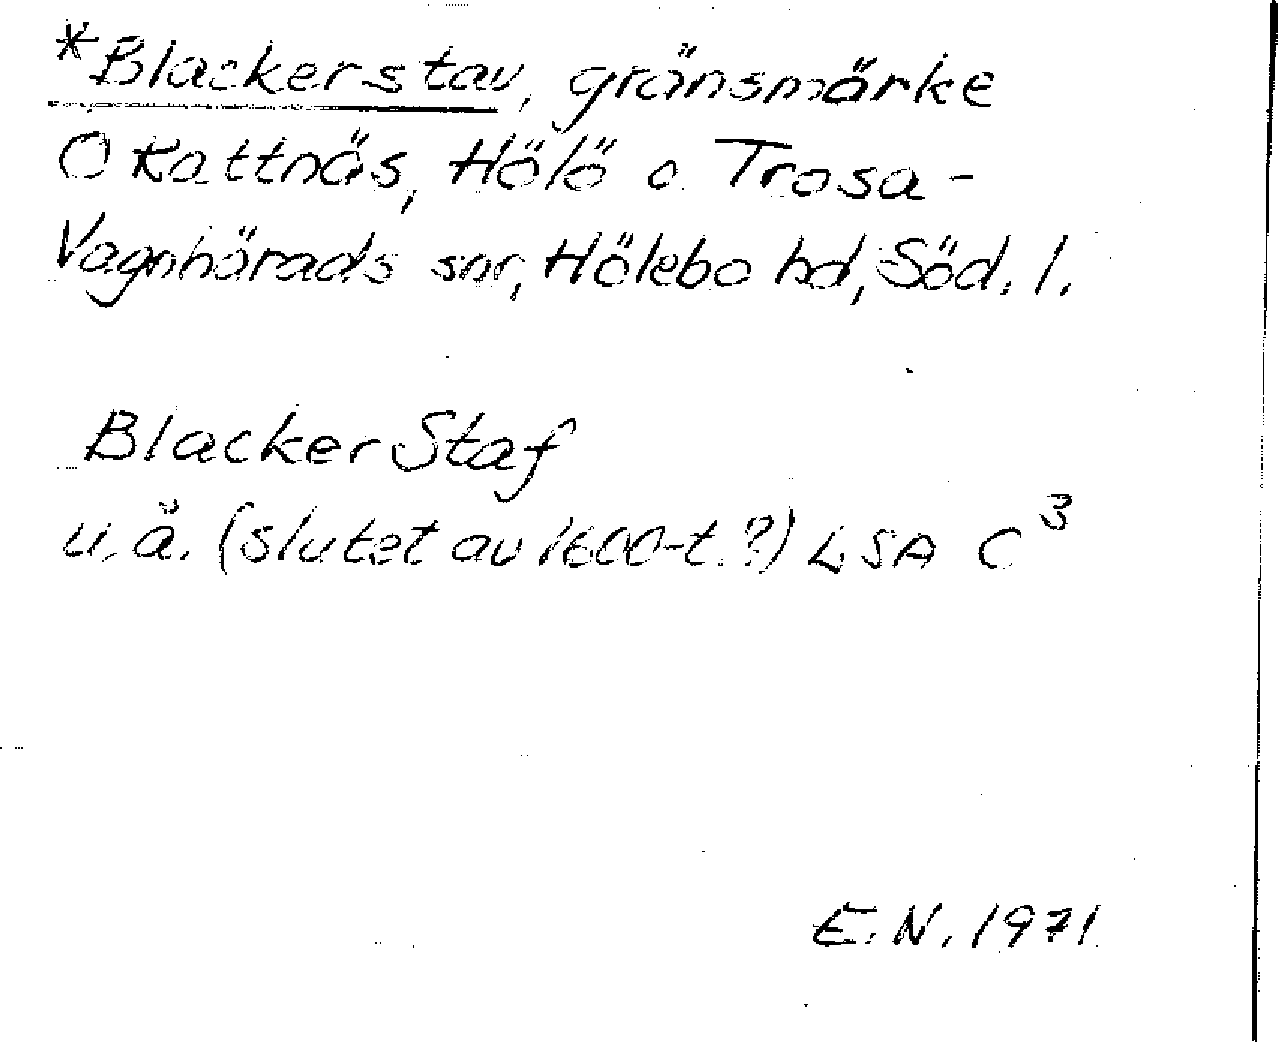 *Blackerstav, gränsmärke
O Kattnäs, Hölö o. Trosa-
Vagnhärads snr, Hölebo hd, Söd. l.
Blacker Staf
u.å. (slutet av 1600-t.?) LSA C³
E.N. 1971